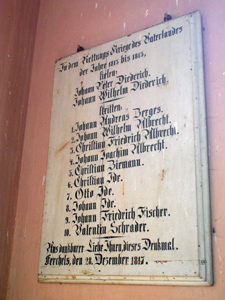 In dem Rettungs Kriege des Vaterlandes
der Jahre 1813 bis 1815.
fielen:
Johann Peter Diederich.
Johann Wilhelm Diederich.
stritten.
1. Johann Andreas Berges.
2. Johann Wilhelm Albrecht.
3. Christian Friedrich Albrecht.
4. Johann Joachim Albrecht.
5. Christian Biemann.
6. Christian Ide.
7. Otto Ide.
8. Johann Ide.
9. Johann Friedrich Fischer.
10. Valentin Schrader.
Aus dankbarer Liebe Ihnen dieses Denkmal.
den 28. Dezember 1817.